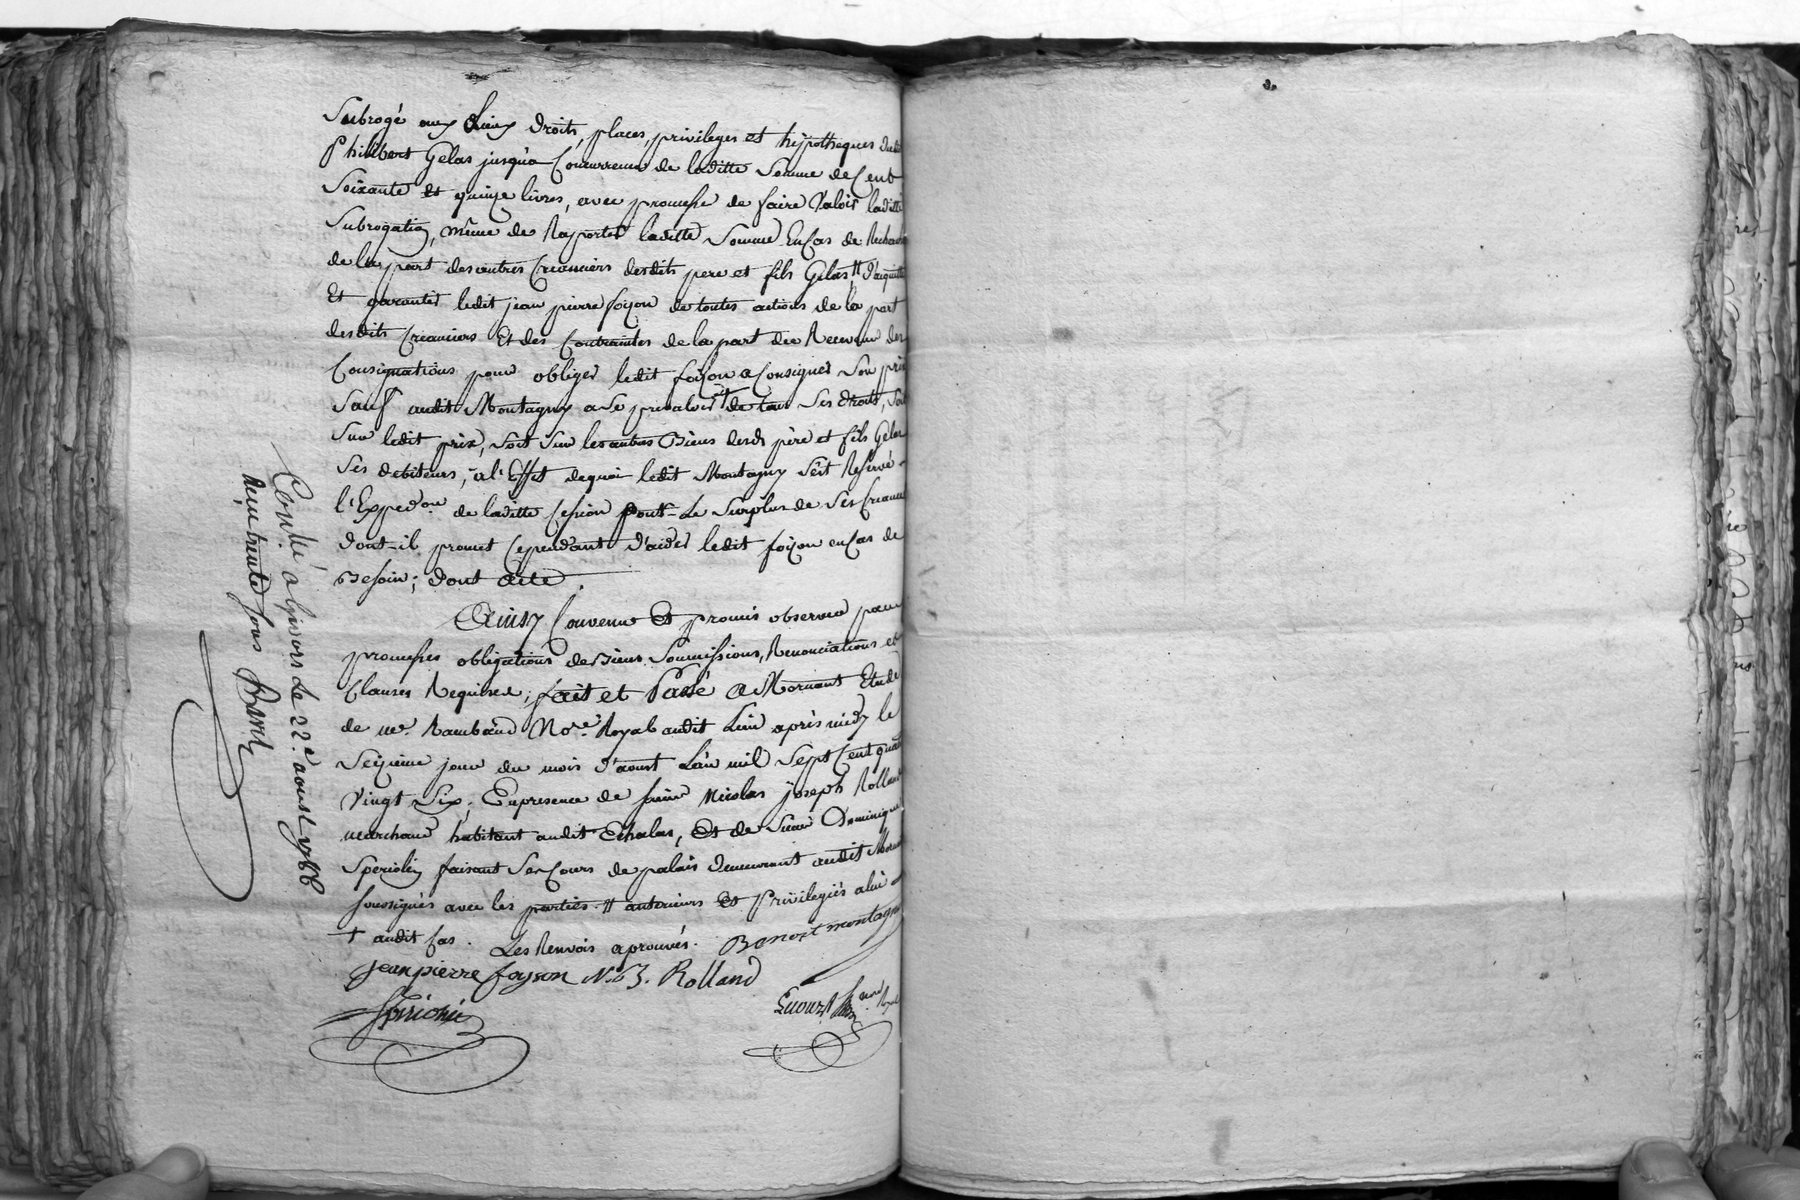 Subrogé aux Lieux droits, places, privileges et hÿpotheques dudit
Philibert Gelas jusqu'a Concurrence de laditte Somme de Cent
Soixante et quinze livres, avec promesse de faire Valoir laditte
Subrogation, même de Rapporter laditte Somme En Cas de
de la part des autres Creanciers desdits pere et fils Gelas, # d'acquitter
Et garantir ledit jean pierre foÿon de toutes actions de la part
desdits Creanciers Et des Contraintes de la part du Receveur des
Consignations pour obliger ledit foÿson a Consigner Son prix
Sauf audit Montagny a Se prevaloir † de tous Ses droits, Soit
Sur ledit prix, Soit Sur les autres Biens desds père et fils Gelas
Ses debiteurs, a l'Effet dequoi ledit Montagny S'est Reservé
l'Expedon de laditte Cession pour Le Surplus de Ses Creances
dont il promet Cependant d'aider ledit foÿon en Cas de
Besoin; dont acte.
Ainsy Convenu Et promis observer par
promesses obligations de Biens Soumissions, Renonciations et
Clauses Requises; fait et Passé A Mornant Etude
de me. Rambaud Nore. Royal audit Lieu après midy le
Seizieme jour du mois d'aoust L'an mil Sept Cent quatre
Vingt Six, En presence de Sieur Nicolas joseph Rolland
marchand habitant audit Echalas, Et de Sieur Dominique
faisant Ses Cours de palais demeurant audit Mornant
Soussignés avec les parties. # anterieurs Et Privilegiés a lui
† audit Cas. Les Renvois aprouvés. Benoit montagny
jean pierre foyson N. J. Rolland
Controlé a Givors Le 22e aoust 1786
Reçu trente sous